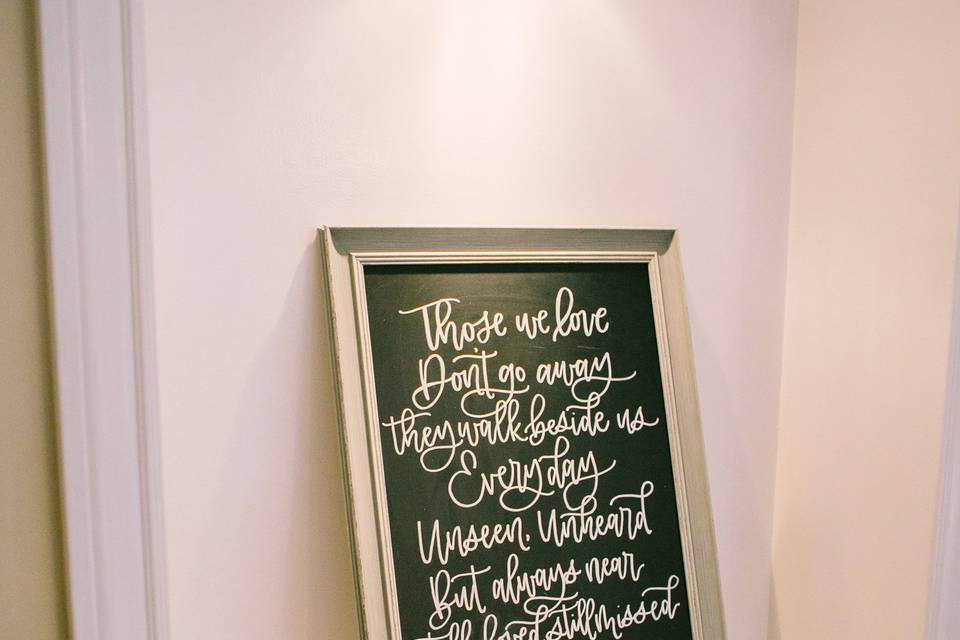 Those we love
Don't go away
they walk beside us
Everyday
Unseen, Unheard
But always near
Still loved still missed